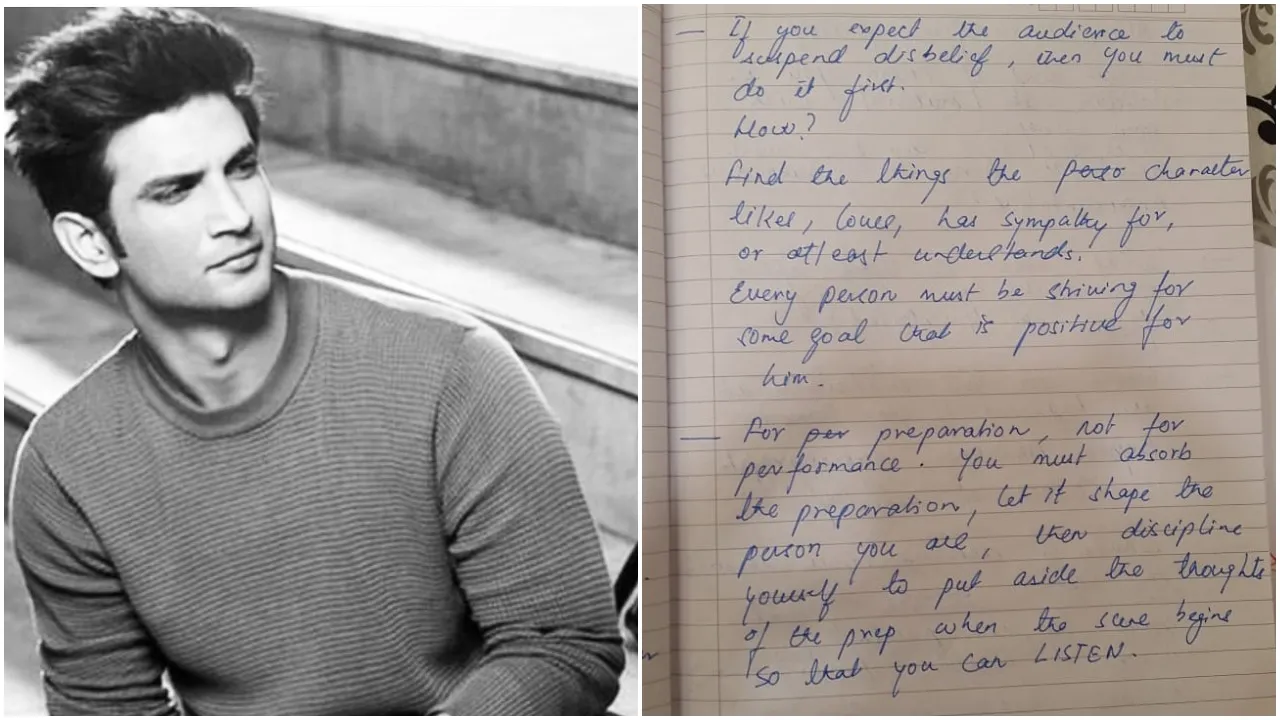 — If you expect the audience to
suspend disbelief, then you must
do it first.
How?
Find the things the perso character
likes, loves, has sympathy for,
or atleast understands.
Every person must be striving for
some goal that is positive for
him.
— For per preparation, not for
performance. You must absorb
the preparation, let it shape the
person you are, then discipline
yourself to put aside the thoughts
of the prep when the scene begins
so that you can LISTEN.